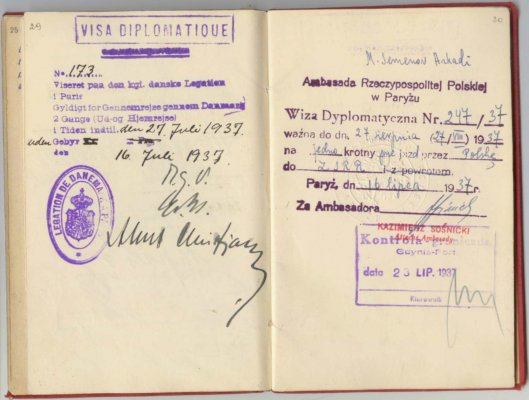 29
VISA DIPLOMATIQUE
No. 173
Viseret paa den kgl. danske Legation
i Paris
Gyldigt for Gennemrejse gennem Danmark
2 Gange (Ud-og Hjemrejse)
i Tiden indtil den 27. Juli 1937.
uden Gebyr
den 16. Juli 1937.
LEGATION DE DANEMARK
30
M. Semenov Arkadi
Ambasada Rzeczypospolitej Polskiej
w Paryżu
Wiza Dyplomatyczna Nr. 247/37
ważna do dn. 27 sierpnia (27/VIII) 1937
na jedno krotny przejazd przez Polskę
do Z.S.R.R. i z powrotem.
Paryż, dn. 16 lipca 1937 r.
Za Ambasadora
KAZIMIERZ SOŚNICKI
Attaché Ambasady
Kontrola graniczna
Gdynia-Port
data 23 LIP. 1937
Kierownik